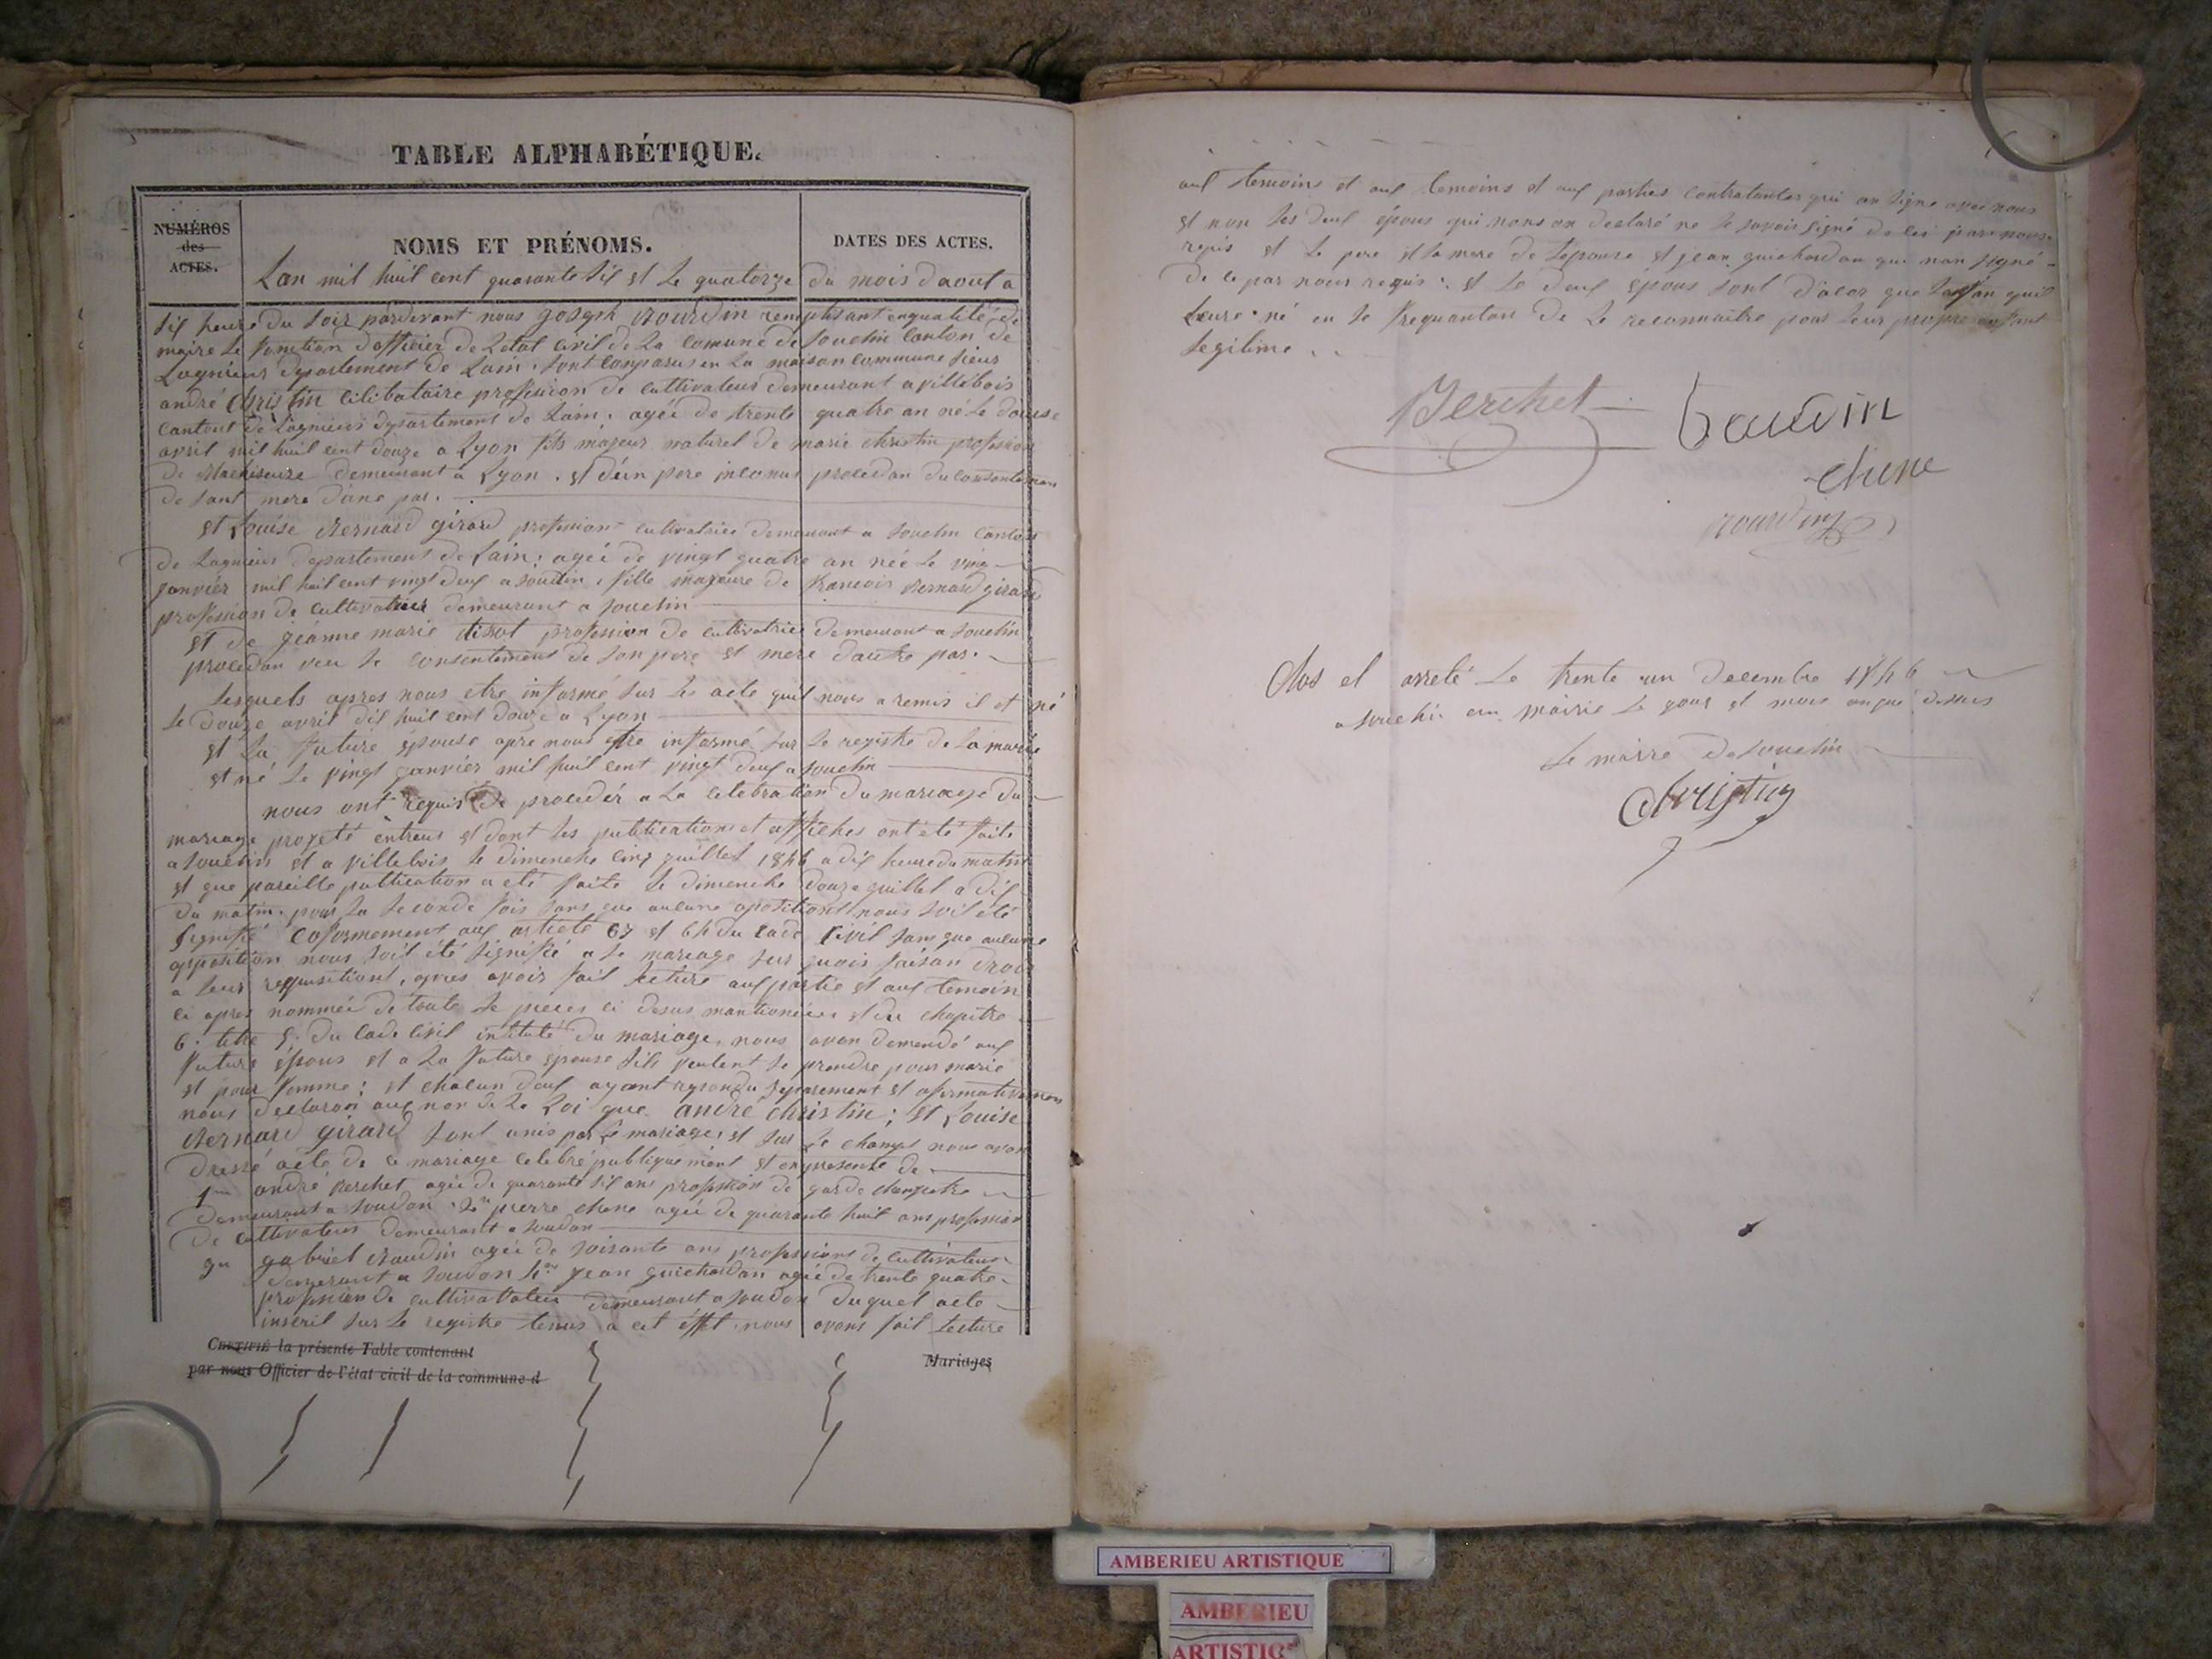 TABLE ALPHABÉTIQUE.
NUMÉROS
des
ACTES.
NOMS ET PRÉNOMS.
DATES DES ACTES.
Lan mil huil cent quarante sil et le quatorze du mois daout a
sil heure du soir pardevant nous Joseph remplissant enqualité de
maire le fonction dofficier de letat civil de la comune de souclin canton de
Lagnieus departement de Lain. sont comparus en la maison commune sieur
andré christin cilibataire profession de cultivateur demeurant a villebois
cantont de Lagnieus departement de Lain. ageé de trente quatre an né le douse
avril mil huil cent douze a Lyon fils majeur naturel de marie christin profession
de demeurant a Lyon. et dun pere inconus procedan du consentemen
de sant mere dune par.
et Louise Bernard girard profession cultivatrice demeurant a souclin canton
de Lagnieus departement de Lain; ageé de vingt quatre an neé le ving
janvier mil huil cent vingt deux a souclin, fille majeure de francois Bernard girard
profession de cultivateur demeurant a souclin
et de jeanne marie tissot profession de cultivatrice demeurant a souclin
procedan veu le consentement de son pere et mere dautre par.
Lesquels apres nous etre informé sur le acte quil nous a remis il et né
le douze avril mil huil cent douze a Lyon
et La future épouse apre nous etre informé sur le registre de la mairie
et né le vingt janvier mil huil cent vingt deux a souclin
nous ont requis de proceder a la celebration du mariage du
mariage projeté entreus et dont les publications et affiches ont été faite
a souclin et a villebois le dimenche cinq juillet 1846 a dix heure du matin
et que pareille publication a eté faite le dimenche douze juillet a dix
du matin. pour la seconde fois sans que aucune opositions nous soit été
signifié coformement aux article 63 et 64 du code civil sans que aucune
opposition nous soit été signifié a le mariage sur quois faisan droit
a leur requisitiont, apres avoir fait lecture aux partie et aux temoin
ci apres nommée de toute le pieces ci desus mantionéées et du chapitre
6. titre 5. du code civil intitulé du mariage, nous avon demendé aux
future épous et a la future épouse sils veulent se prendre pour marie
et pour femme; et chacun deux ayant repondu separement et afirmativemen
nous declaron aux non de la Loi que andré christin; et Louise
Bernard girard sont unis par le mariage, et sur le champt nous avon
dressé acte de ce mariage celebré publiquement et enpresente de
1er andré Berchet ageé de quarante sil ans profession de garde champetre
demeurant a soudon 2e pierre chene ageé de quarante huit ans profession
de cultivateur demeurant a soudon
gabriel ageé de soisante ans professiont de cultivateur
demeurant a soudon 4e jean guichardan ageé de trente quatre
profession de cultivateur demeurant a soudon duquel acte
inscrit sur le registre tenus a cet effet nous avons fait lecture
CERTIFIÉ la présente Table contenant
Mariages
par nous Officier de l'état civil de la commune d
aux temoins et aux temoins et aux parties contratantes qui on signe avec nous
et non les deux épous qui nons on declaré ne le savoir signé de ce par nous
requis et le pere et la mere de lepouse et jean guichardan qui non signé
de ce par nous requis. et le deux épous sont dacor que lanfan quil
leure né en le frequantan de le reconnaitre pour leur propre enfant
legitime.
Berchet
baudin
chene
Clos et arreté le trente un decembre 1846
a souclin en mairie le jour et mois an que desus
le maire de souclin
Christin
AMBERIEU ARTISTIQUE
AMBERIEU
ARTISTIQ